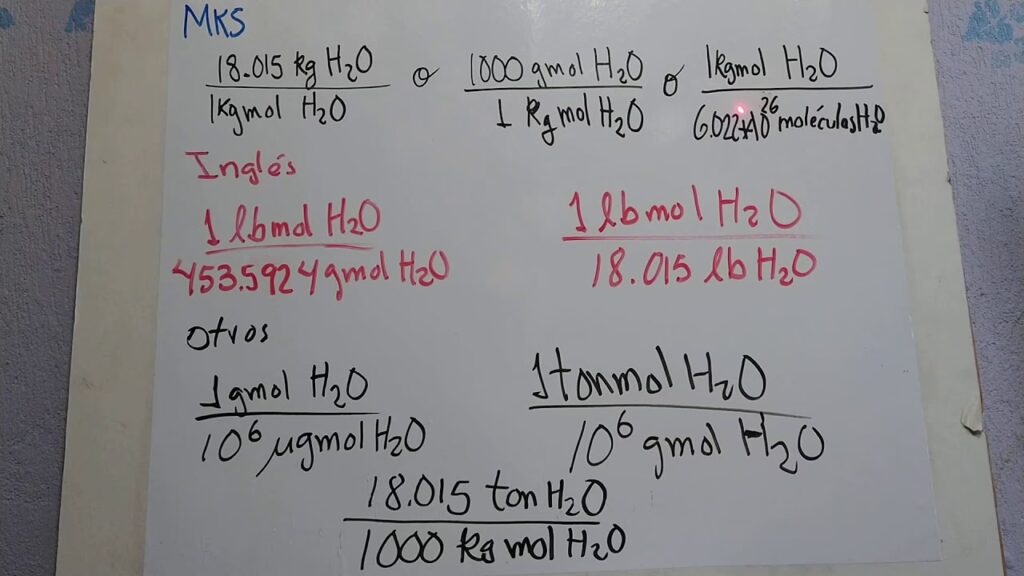 MKS
18.015 kg H₂O o 1000 gmol H₂O o 1kgmol H₂O
1kgmol H₂O 1 kgmol H₂O 6.022*10²⁶ moléculas H₂O
Inglés
1 lbmol H₂O 1 lbmol H₂O
453.5924 gmol H₂O 18.015 lb H₂O
otros
1 gmol H₂O 1 tonmol H₂O
10⁶ µgmol H₂O 10⁶ gmol H₂O
18.015 ton H₂O
1000 kg mol H₂O